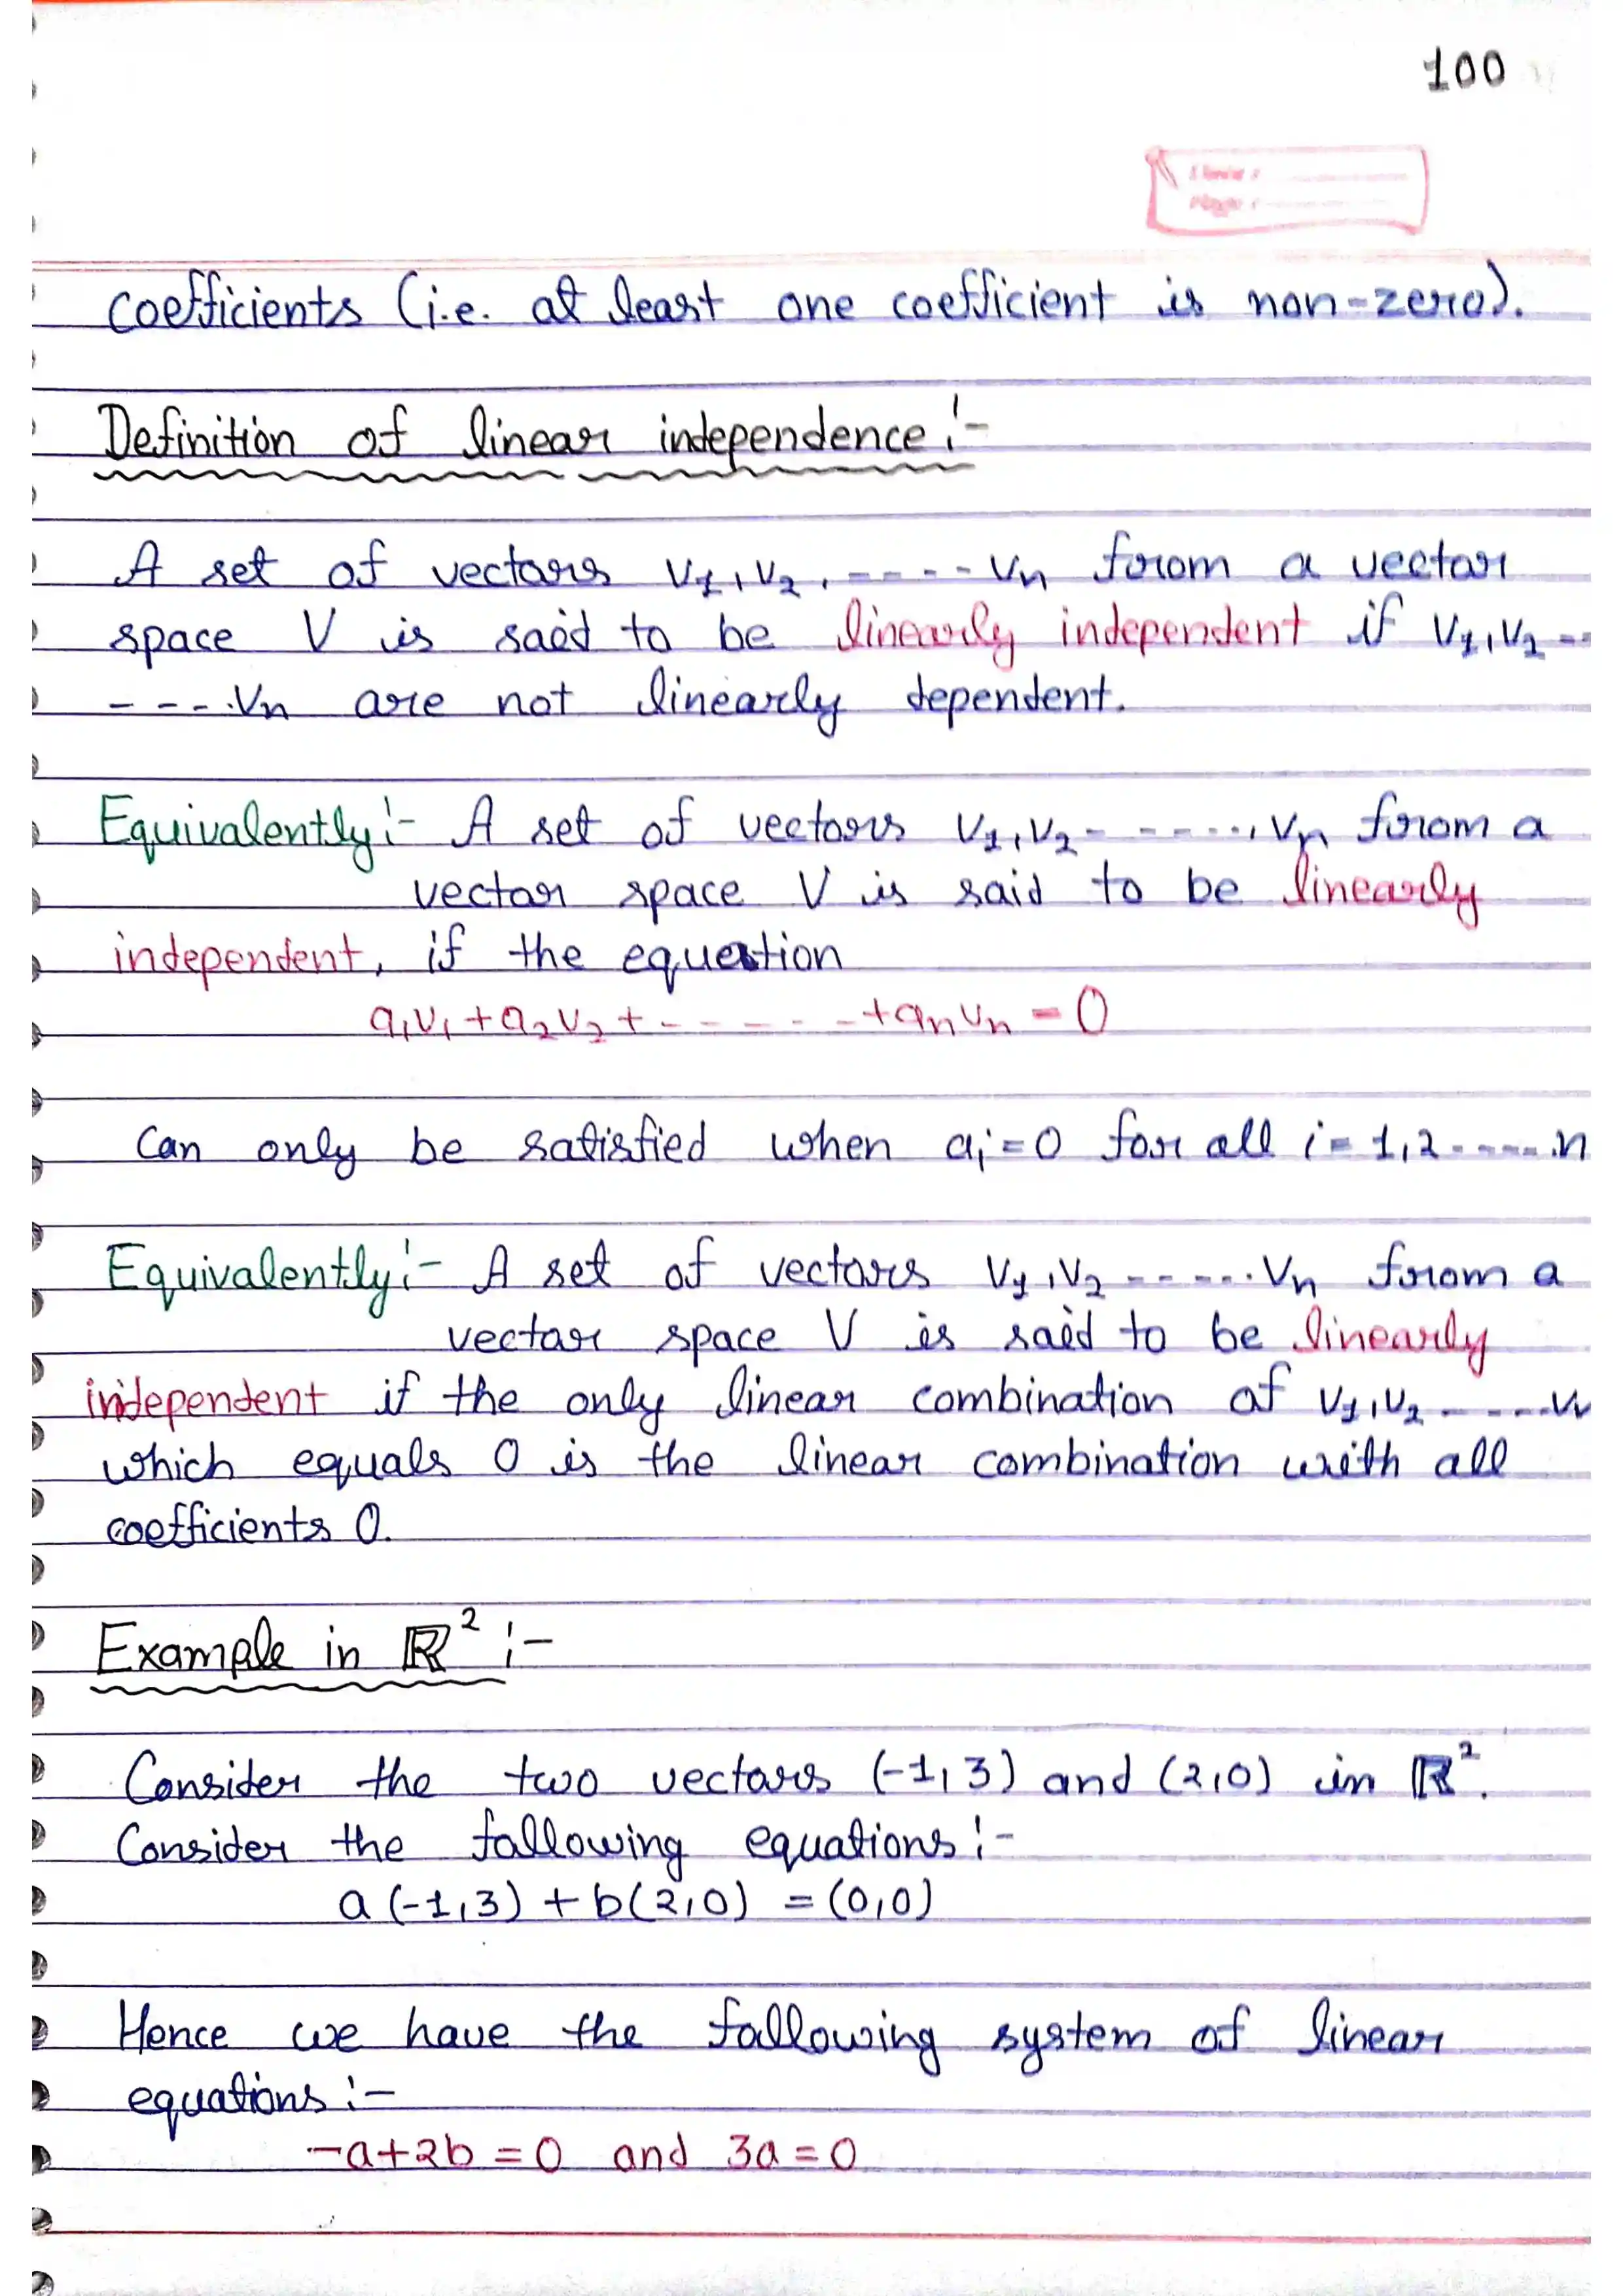 100
coefficients (i.e. at least one coefficient is non-zero).
Definition of linear independence :-
A set of vectors v1, v2, ---- vn from a vector
space V is said to be linearly independent if v1, v2 --
----.vn are not linearly dependent.
Equivalently :- A set of vectors v1, v2 - - ----., vn from a
vector space V is said to be linearly
independent, if the equation
a1v1 + a2v2 + - - - - - - + anvn = 0
Can only be satisfied when ai = 0 for all i = 1, 2 ------ n
Equivalently :- A set of vectors v1, v2 ------ vn from a
vector space V is said to be linearly
independent if the only linear combination of v1, v2 ----- vn
which equals 0 is the linear combination with all
coefficients 0.
Example in ℝ² :-
Consider the two vectors (-1, 3) and (2, 0) in ℝ².
Consider the following equations :-
a (-1, 3) + b(2, 0) = (0, 0)
Hence we have the following system of linear
equations :-
-a + 2b = 0 and 3a = 0